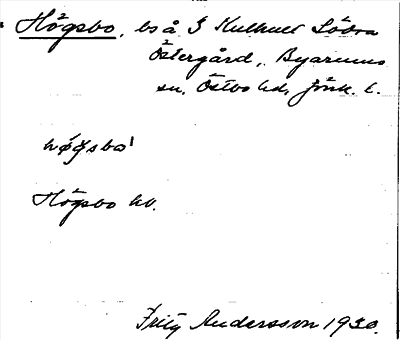 Högsbo, bs å 3 Kulhuet Södra
Östergård, Byarums
sn, Östbo hd, Jönk. l.
högsbo
Högsbo hv.
Fritz Andersson 1930.